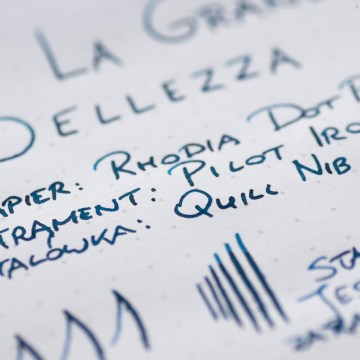 LA GRAN
BELLEZZA
PAPIER: RHODIA DOT P
ATRAMENT: PILOT IRO
STALÓWKA: QUILL NIB
STA
JES
ZARA